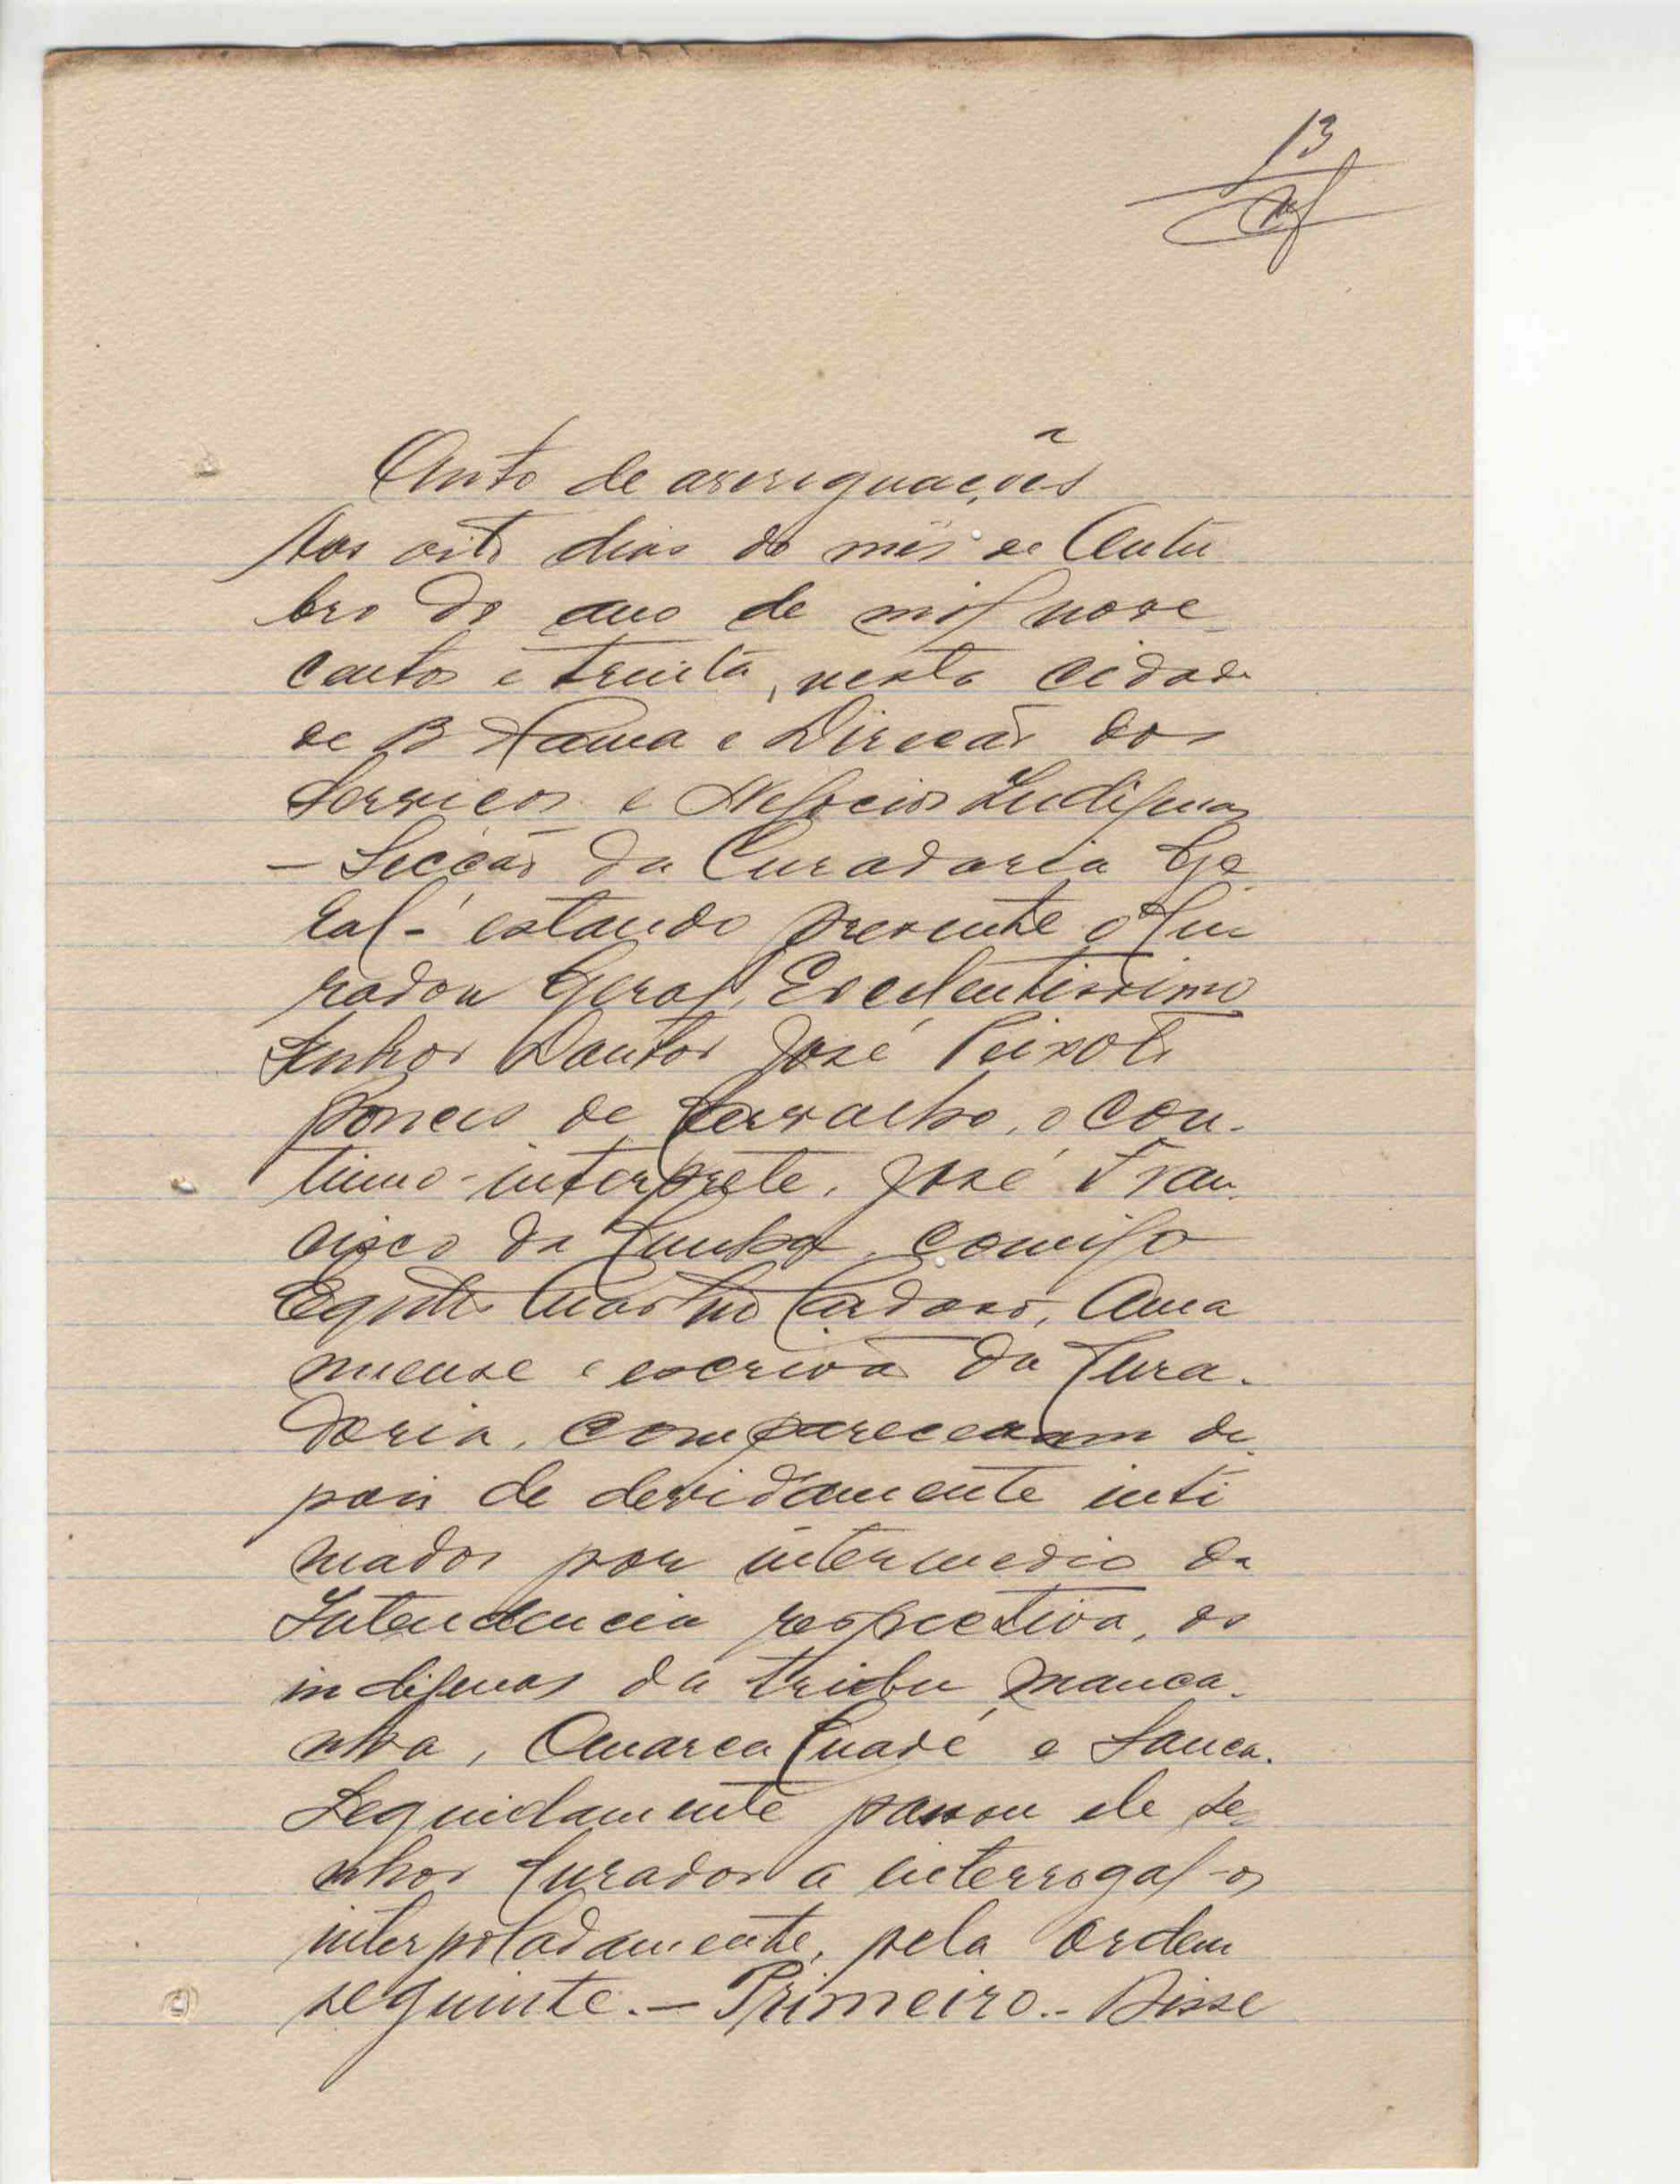 13
Auto de averiguações
Aos oito dias do mês de Outu
bro do ano de mil nove
centos e trinta, nesta cidade
de Bolama e Direcção dos
Serviços e Negocios Indigenas
— Secção da Curadoria Ge
ral - estando presente o Cu
rador Geral, Excelentissimo
Senhor Doutor José Peixoto
Ponces de Carvalho, o con-
tinuo-interprete, José Fran
cisco da Cunha, comigo
Cardoso, Ama
nuense e escrivão da Cura-
doria, compareceram de
pois de devidamente inti
mados por intermedio da
Intendencia respectiva, os
indigenas da tribu manca-
nha, Quarca Cuadé e Sanca.
Seguidamente passou ele se-
nhor Curador a interrogal-os
interpoladamente, pela ordem
seguinte. — Primeiro. - Disse